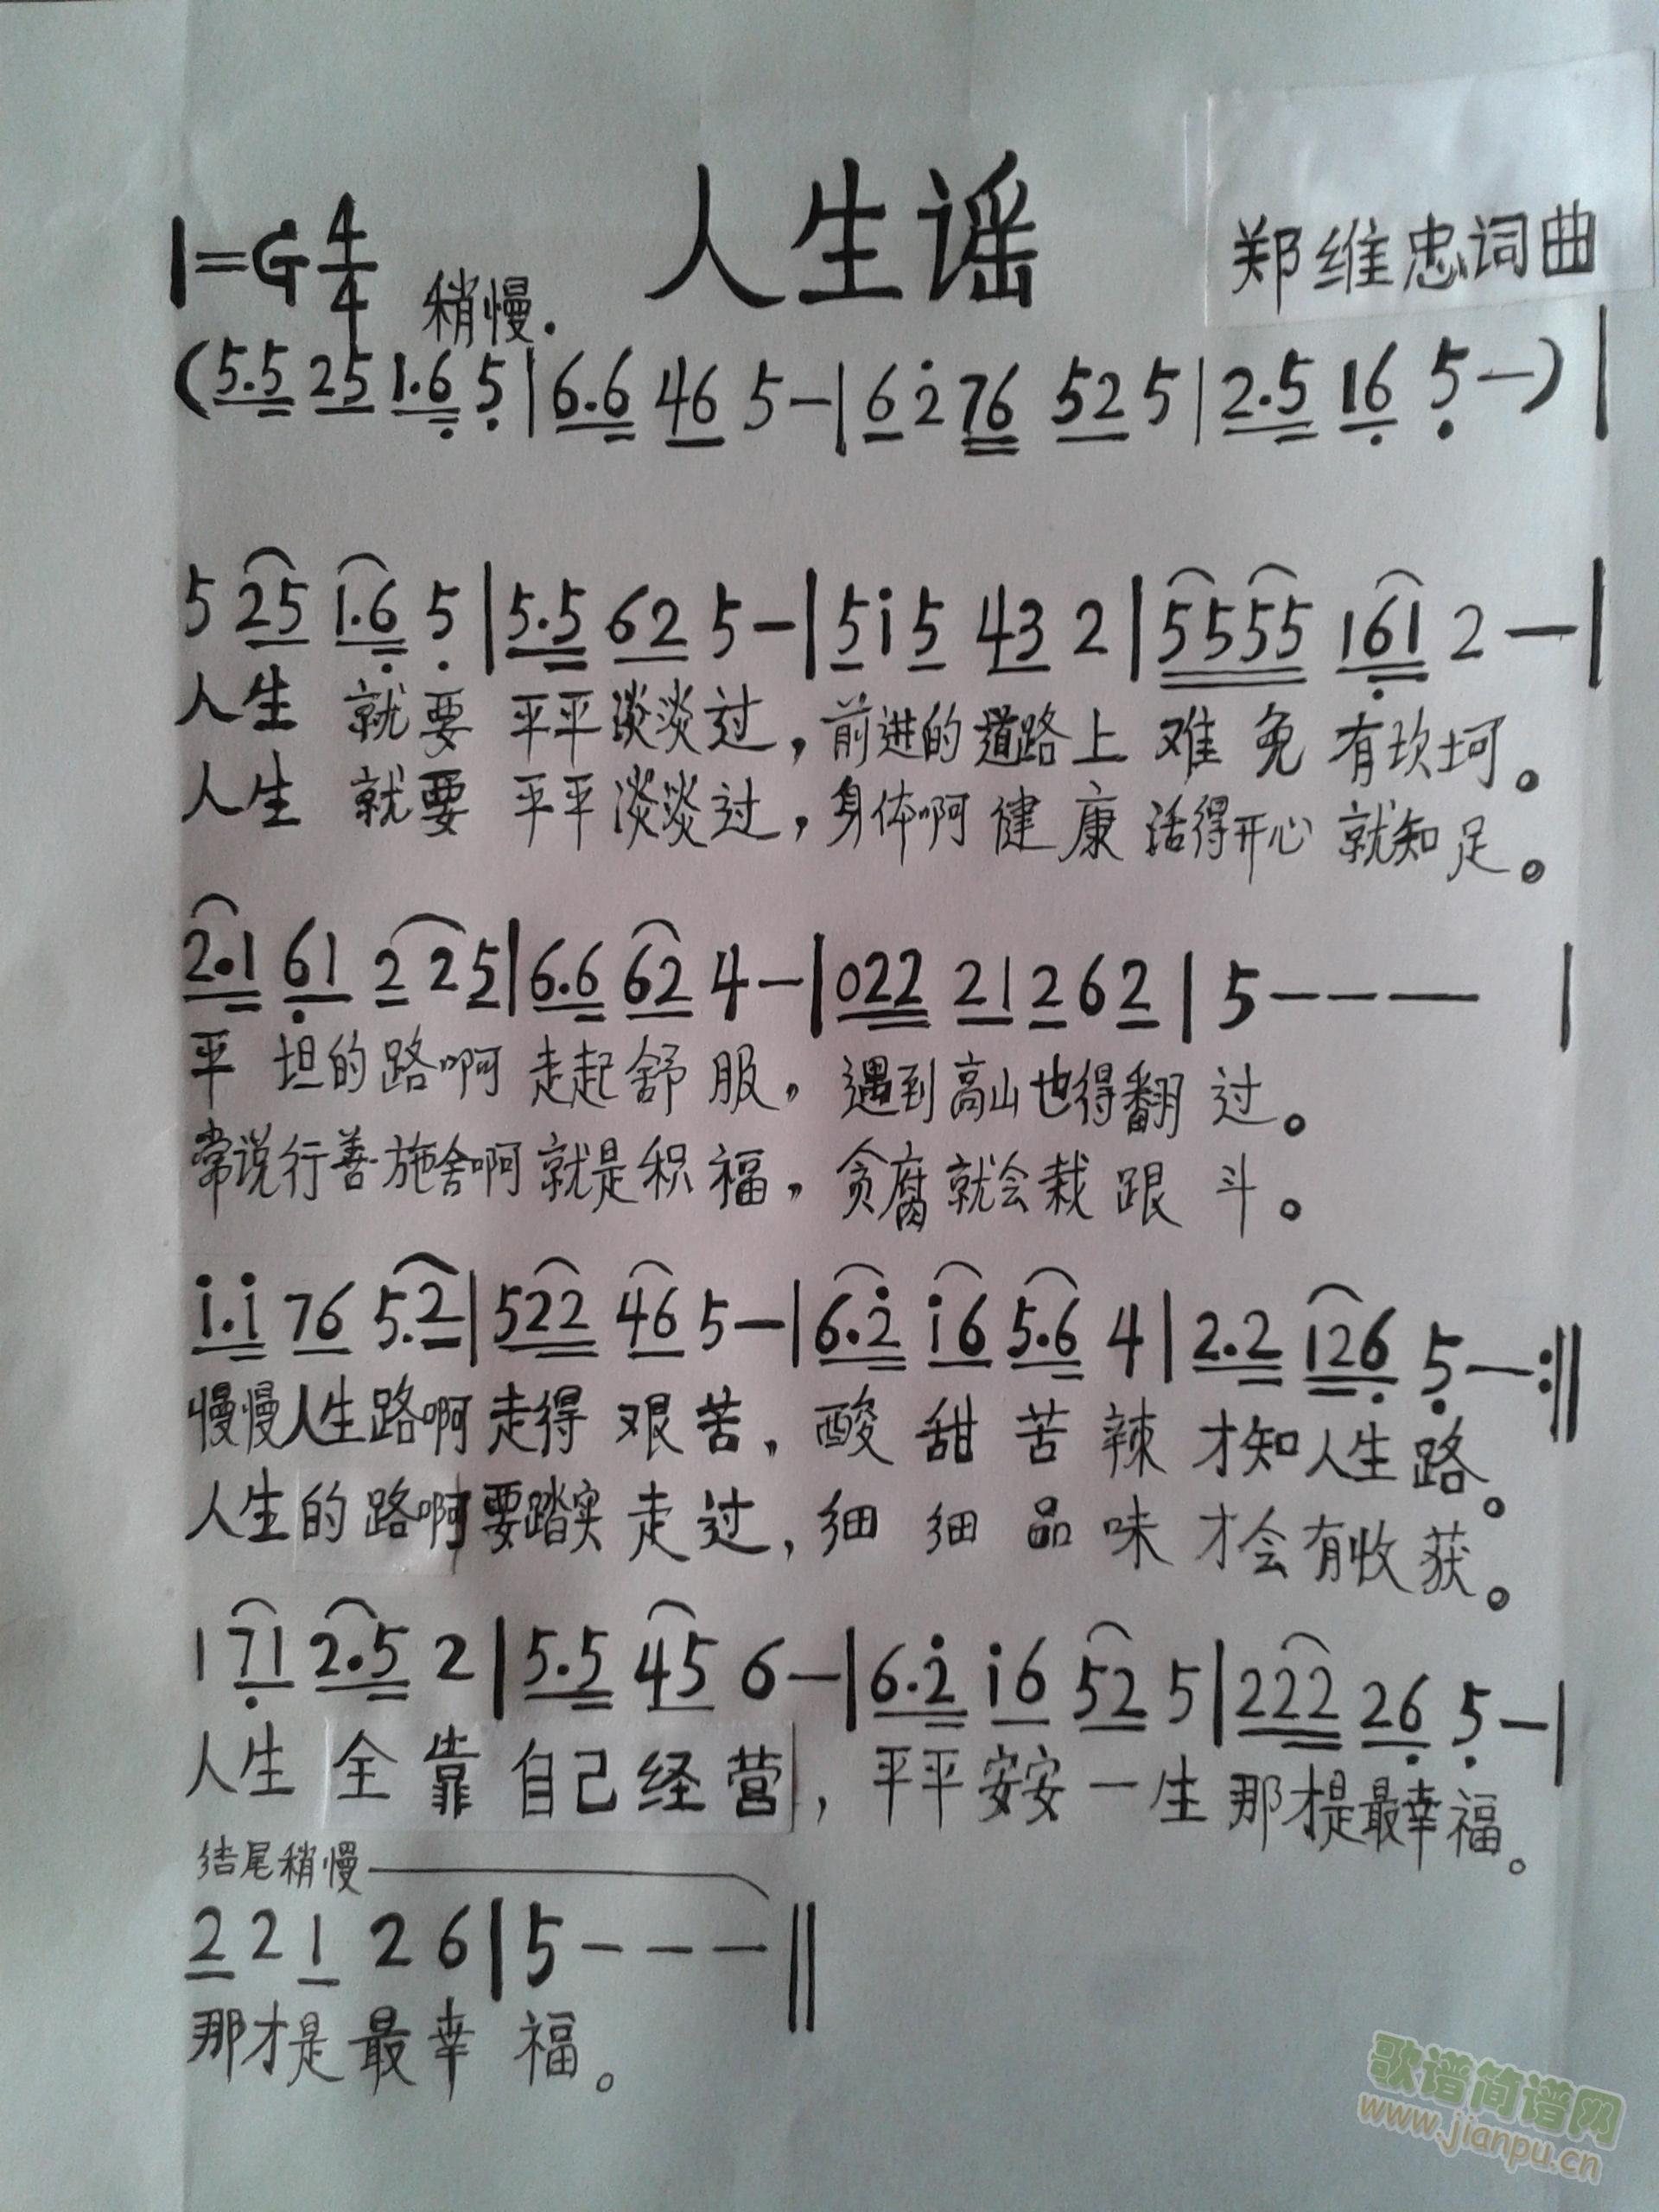 人生谣
1=G 4/4 稍慢. 郑维忠词曲
(5.5 25 1.6 5|6.6 46 5-|6 2̇ 76 52 5|2.5 16 5-)|
5 25 1.6 5|5.5 62 5-|5 i 5 43 2|5555 161 2-|
人生 就要 平平淡淡过,前进的道路上 难 免 有坎坷。
人生 就要 平平淡淡过,身体啊 健 康 活得开心 就知足。
2.1 61 2 2 5|6.6 62 4-|022 21 2 6 2|5---|
平 坦的路啊 走起舒服,遇到高山也得翻过。
常说行善施舍啊就是积福,贪腐就会栽跟斗。
i.i 76 5.2|522 46 5-|6.2̇ i6 5.6 4|2.2 126 5-:‖
慢慢人生路啊走得 艰苦,酸 甜 苦 辣 才知人生路。
人生的路啊要踏实 走过,细 细 品 味 才会有收获。
1 71 2.5 2|5.5 45 6-|6.2̇ i6 52 5|222 26 5-|
人生 全靠 自己经营,平平安安一生 那才是最幸福。
结尾稍慢
2 2 1 2 6|5---‖
那才是最幸 福。
歌谱简谱网
www.jianpu.cn